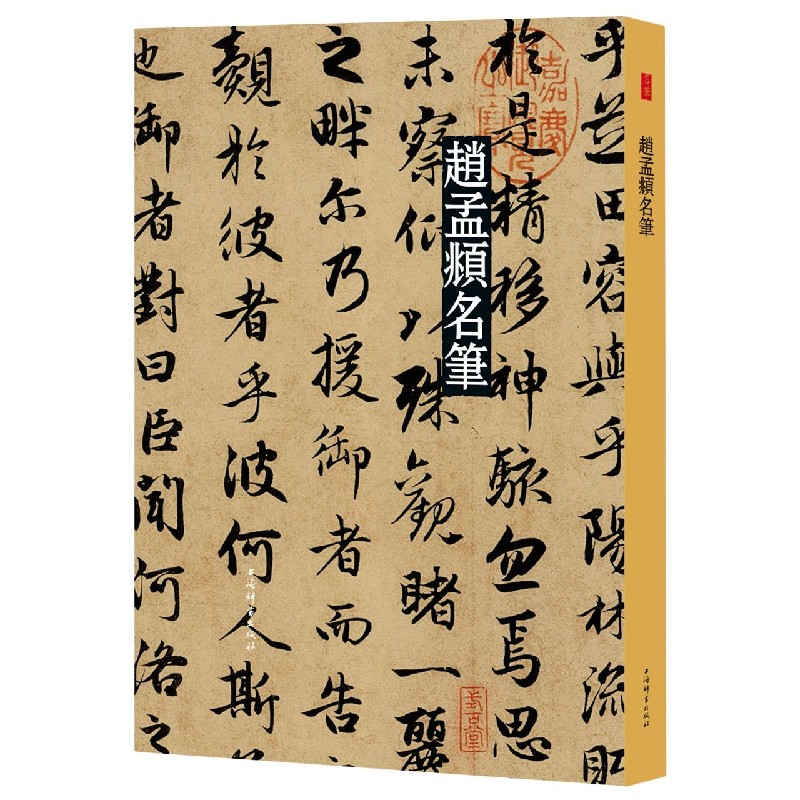 乎芝田容與乎陽林流
於是精移神駭忽焉思
未察仰以殊觀睹一麗
之畔尔乃援御者而告之
覿於彼者乎彼何人斯
也御者對曰臣聞河洛之
嘉慶御覽之寶
趙孟頫名筆
上海辭書出版社
名筆
趙孟頫名筆
上海辭書出版社